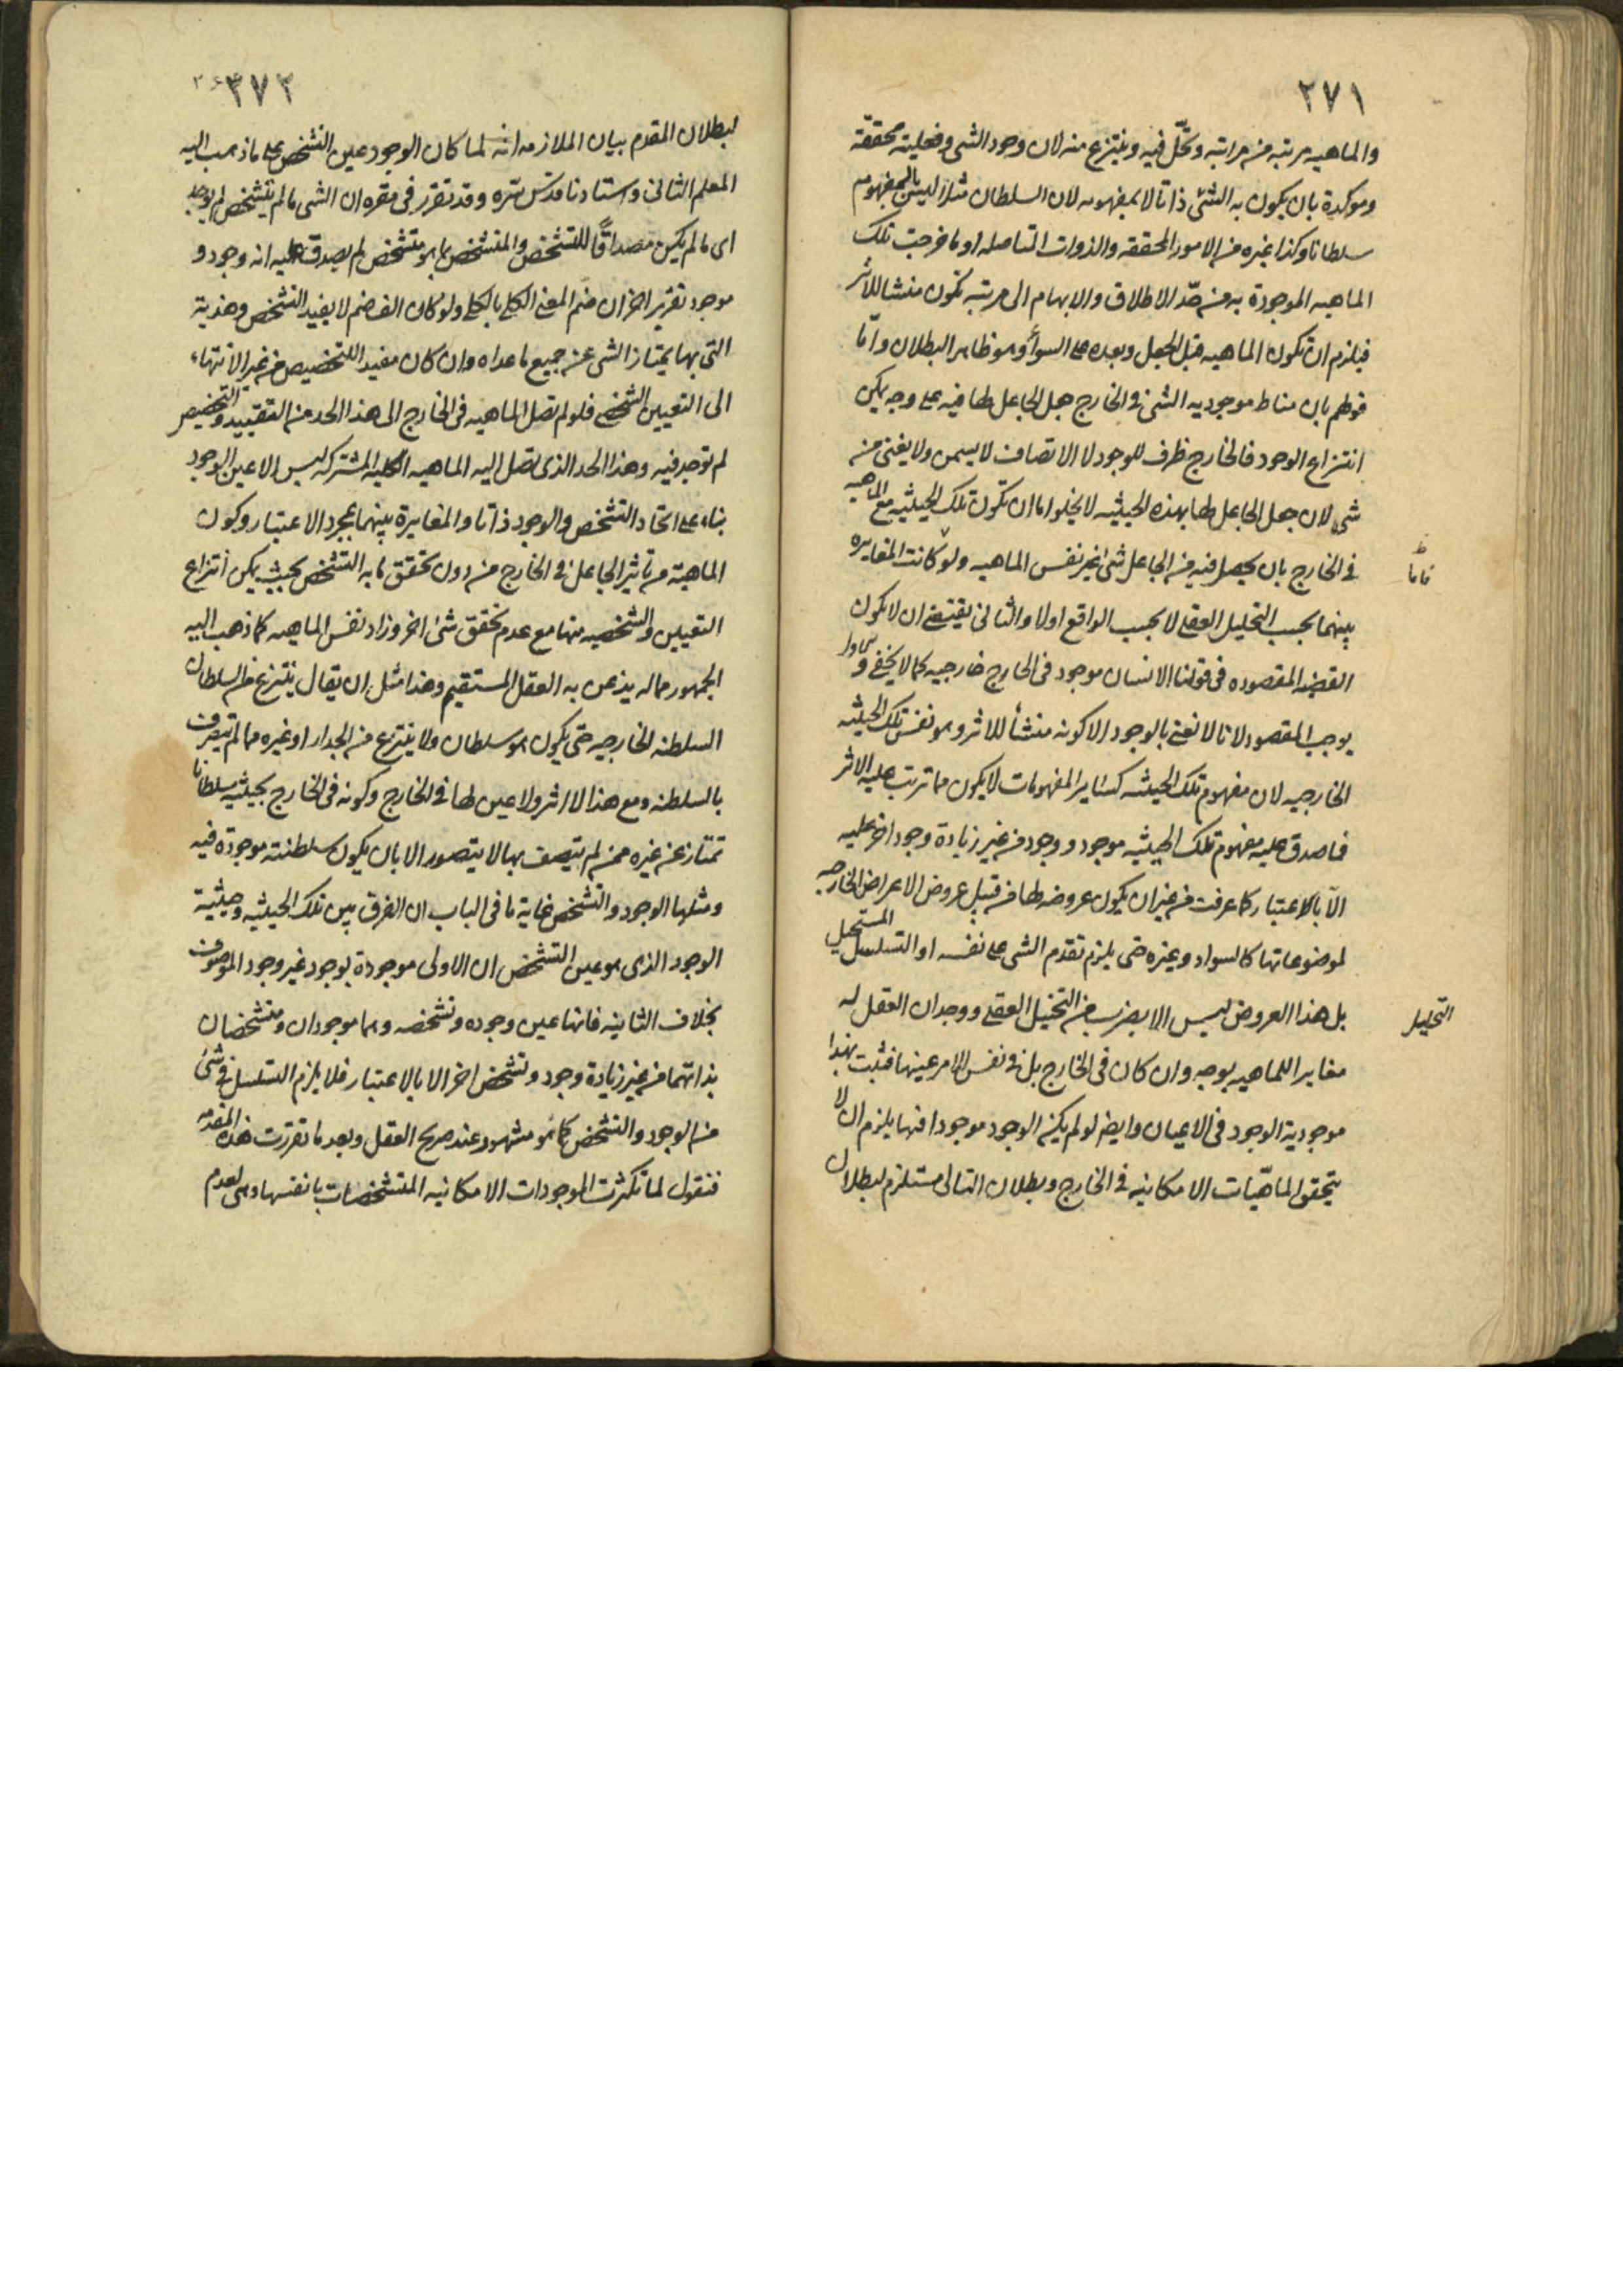 ٢٧١
والماهيه مرتبه من مراتبه وتحل فيه وينتزع منه لان وجود الشى وفعليته محققة
وموكدة بان يكون به الشئ ذاتا لا بمفهومه لان السلطان مثلا ليس بالمفهوم
سلطانا وكذا غيره من الامور المحققه والذوات المتاصله او ما خرجت تلك
الماهيه الموجودة به من حد الاطلاق والابهام الى مرتبه تكون منشا للاثر
فيلزم ان تكون الماهيه قبل الجعل وبعده على السوأ وهو ظاهر البطلان واما
قولهم بان مناط موجوديه الشئ فى الخارج جعل الجاعل لها فيه على وجه يمكن
انتزاع الوجود فالخارج ظرف للوجود لا الاتصاف لا يسمن ولا يغنى من
شئ لان جعل الجاعل لها بهذه الحيثيه لا يخلوا ما ان تكون تلك الحيثيه مع الماهيه
فى الخارج بان يحصل فيه من الجاعل شئ غير نفس الماهيه ولو كانت المغايره
فاما
بينهما بحسب التحليل العقلى لا بحسب الواقع اولا والثانى يقتضى ان لا يكون
القضيه المقصوده فى قولنا الانسان موجود فى الخارج خارجيه كما لا يخفى و
يوجب المقصود لانا لا نعنى بالوجود الا كونه منشأ للاثر وهو نفس تلك الحيثيه
الخارجيه لان مفهوم تلك الحيثيه كساير المفهومات لا يكون مما ترتب عليه الاثر
فما صدق عليه مفهوم تلك الحيثيه موجود ووجود من غير زيادة وجود اخر عليه
الا بالاعتبار كما عرفت من غير ان يكون عروضه لها من قبيل عروض الاعراض الخارجيه
لموضوعاتها كالسواد وغيره حتى يلزم تقدم الشى على نفسه او التسلسل المستحيل
بل هذا العروض ليس الا بضرب من التخيل العقلى ووجدان العقل له
التحليل
مغاير اللماهيه بوجه وان كان فى الخارج بل فى نفس الامر عينها فثبت بهذا
موجودية الوجود فى الاعيان وايضا لو لم يكن الوجود موجودا فيها يلزم ان لا
يتحقق الماهيات الامكانيه فى الخارج وبطلان التالى مستلزم لبطلان
٣٧٢
لبطلان المقدم بيان الملازمه انه لما كان الوجود عين التشخص على ما ذهب اليه
المعلم الثانى واستادنا قدس سره وقد تقرر فى مقره ان الشى ما لم يتشخص لم يوجد
اى ما لم يكن مصداقا للتشخص والمتشخص بما هو متشخص لم يصدق عليه انه وجود و
موجود تقرير اخر ان ضم المعنى الكلى بالكلى ولو كان الف ضم لا يفيد التشخص وهذية
التى بها يمتاز الشى عن جميع ما عداه وان كان مفيد اللتخصيص من غير الانتهاء
الى التعيين الشخصى فلو لم تصل الماهيه فى الخارج الى هذا الحد من التقييد والتخصيص
لم توجد فيه وهذا الحد الذى تصل اليه الماهيه الكليه المشتركه ليس الا عين الوجود
بناء على اتحاد التشخص والوجود ذاتا والمغايرة بينهما بمجرد الاعتبار وكون
الماهية من تاثير الجاعل فى الخارج من دون تحقق ما به التشخص بحيث يمكن انتزاع
التعيين والتشخصيه منها مع عدم تحقق شئ اخر وزاد نفس الماهيه كما ذهب اليه
الجمهور مما له يذعن به العقل المستقيم وهذا مثل ان يقال ينتزع من السلطان
السلطنه الخارجيه حتى يكون هو سلطان ولا ينتزع من الجدار او غيره مما لم يتصف
بالسلطنه ومع هذا لا اثر ولا عين لها فى الخارج وكونه فى الخارج بحيثيه سلطانا
تمتاز عن غيره ممن لم يتصف بها لا يتصور الا بان يكون سلطنته موجودة فيه
ومثلها الوجود والتشخص غاية ما فى الباب ان الفرق بين تلك الحيثيه وحيثية
الوجود الذى هو عين التشخص ان الاولى موجودة بوجود غير وجود الموصوف
بخلاف الثانيه فانها عين وجوده وتشخصه وهما موجودان ومتشخصان
بذاتهما من غير زيادة وجود وتشخص اخر الا بالاعتبار فلا يلزم التسلسل فى شئ
من الوجود والتشخص كما هو مشهود عند صريح العقل وبعد ما تقررت هذه المقدمه
فنقول لما تكثرت الموجودات الامكانيه المتشخصات بانفسها وهى لعدم